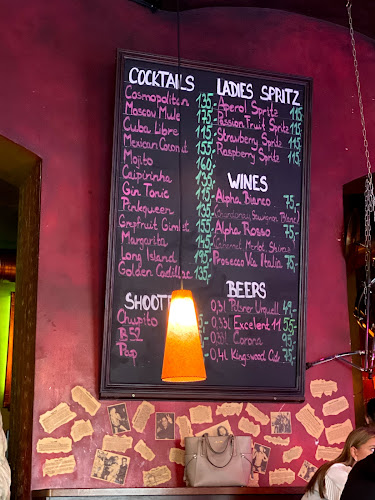 COCKTAILS
Cosmopolitan 135,-
Moscow Mule 175,-
Cuba Libre 115,-
Mexican Coconut 155,-
Mojito 160,-
Caipirinha 135,-
Gin Tonic
Pinkqueen
Grepfruit Gimlet 155,-
Margarita 145,-
Long Island 195,-
Golden Cadillac 135,-
SHOOT
Chupito
B 52
Pap
LADIES SPRITZ
Aperol Spritz 115,-
Passion Fruit Spritz 115,-
Strawberry Spritz 115,-
Raspberry Spritz 115,-
WINES
Alpha Bianco 75,-
Chardonnay Sauvignon Blanc
Alpha Rosso 75,-
Cabernet Merlot Shiraz
Prosecco Via Italia 75,-
BEERS
0,3l Pilsner Urquell 49,-
0,33l Excelent 11 55,-
0,33l Corona 95,-
0,4l Kingswood 75,-